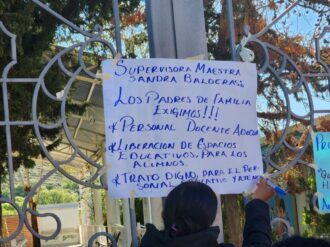 SUPERVISORA MAESTRA
SANDRA BALDERAS:
LOS PADRES DE FAMILIA
EXIGIMOS!!!
* PERSONAL DOCENTE
* LIBERACION DE ESPACIOS
EDUCATIVOS, PARA LOS
ALUMNOS.
* TRATO DIGNO, PARA EL PER-
SONAL